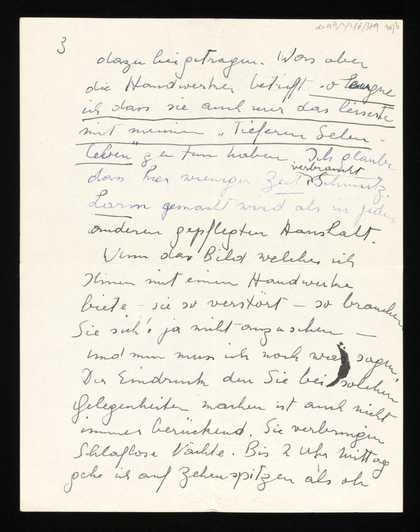 3
dazu beigetragen. Was aber
die Handwerker betrifft so leugne
ich dass sie auch nur das leiseste
mit meinem „Tieferen Seelen-
leben" zu tun haben. Ich glaube
verbraucht
dass hier weniger Zeit Schmutz.
Lärm gemacht wird als in jedem
anderen gepflegten Haushalt.
Wenn das Bild welches ich
Ihnen mit einem Handwerker
biete - sie so verstört - so brauchen
Sie sich's ja nicht anzusehen -
und nun muss ich noch was sagen
Der Eindruck den Sie bei solchen
Gelegenheiten machen ist auch nicht
immer berückend. Sie verbringen
Schlaflose Nächte. Bis 2 Uhr Mittag
gehe ich auf Zehenspitzen als ob